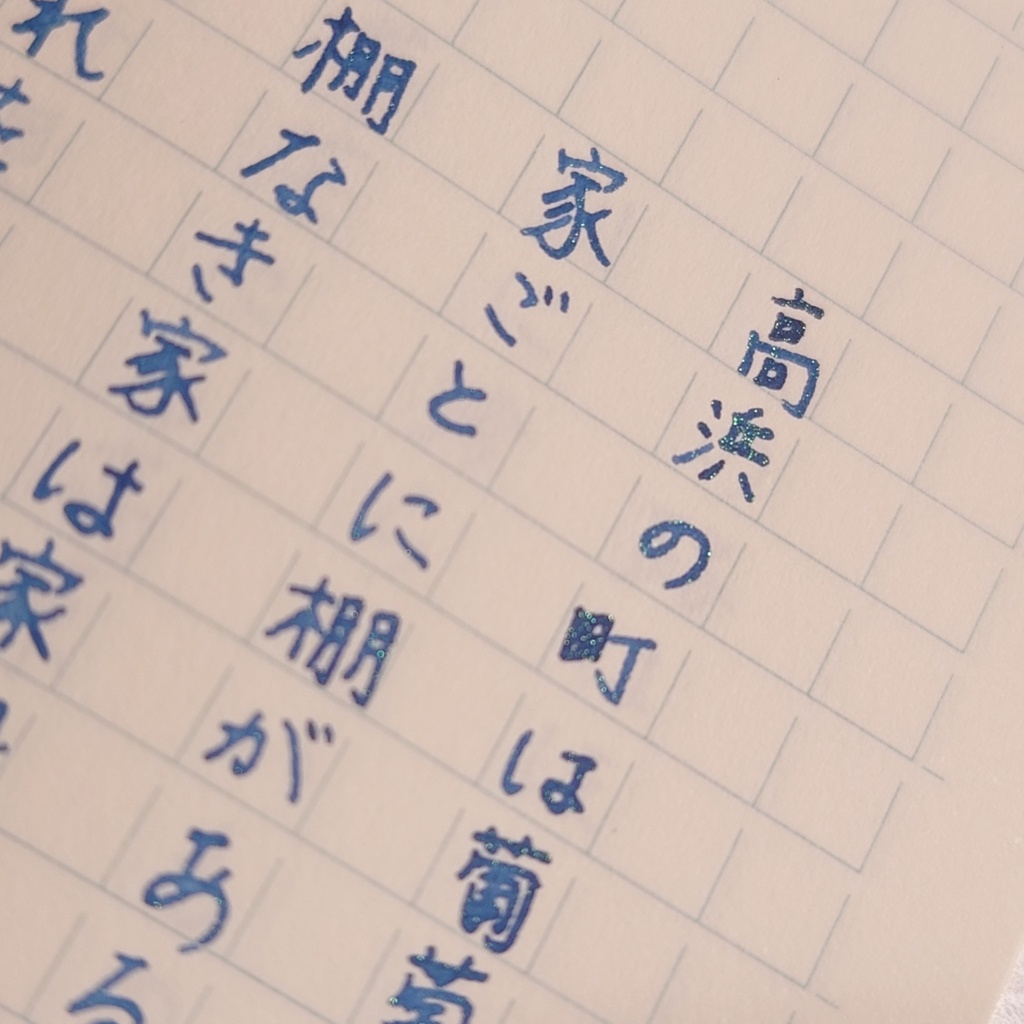 高浜の町は葡萄
家ごとに棚がある
棚なき家は家
れ